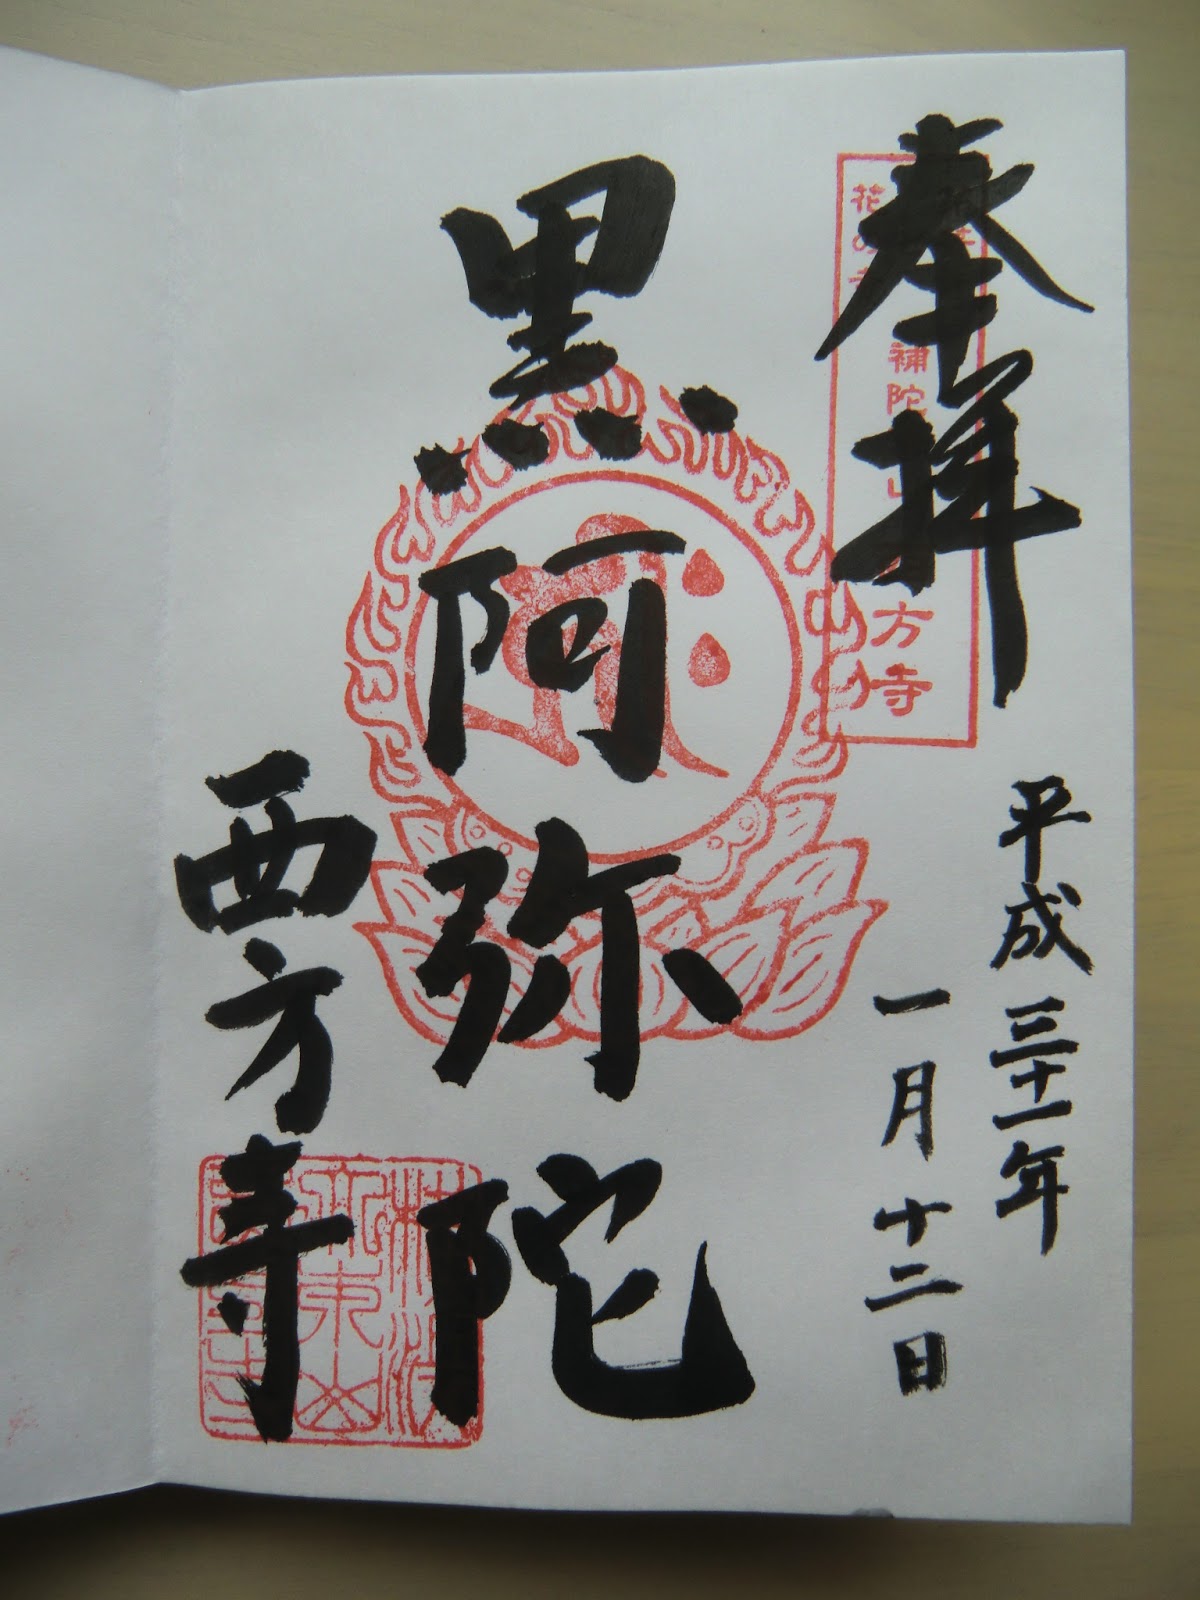 奉拝
平成三十一年
一月十二日
黒阿弥陀
西方寺
花の寺
補陀
方寺